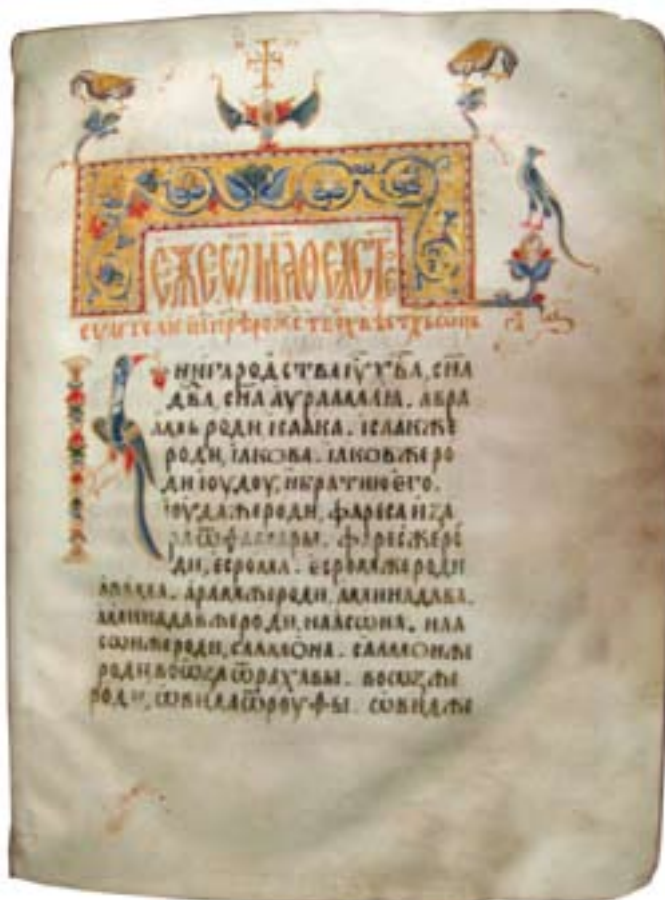 ЕЖЕ Ѿ МАѲЕА СТ҃ОЕ
К нигародстваіу҃хв҃а, сн҃а
дв҃да, сн҃а аѵраамлѧ. авра
амъ роди ісаака. ісаакже
роди, іакова. іаковжеро
ди іоудоу, ибратиюего.
іоудажероди, фареса иза
ра ѿфамары. фаресжеро
ди, есрома. есромжероди
арама. арамжероди, аминадава.
аминадавжероди, наасѡна. наа
сѡнжероди, салмона. салмонже
роди воѡза ѿрахавы. воѡзже
роди, ѡвида ѿроуфы. ѡвидже